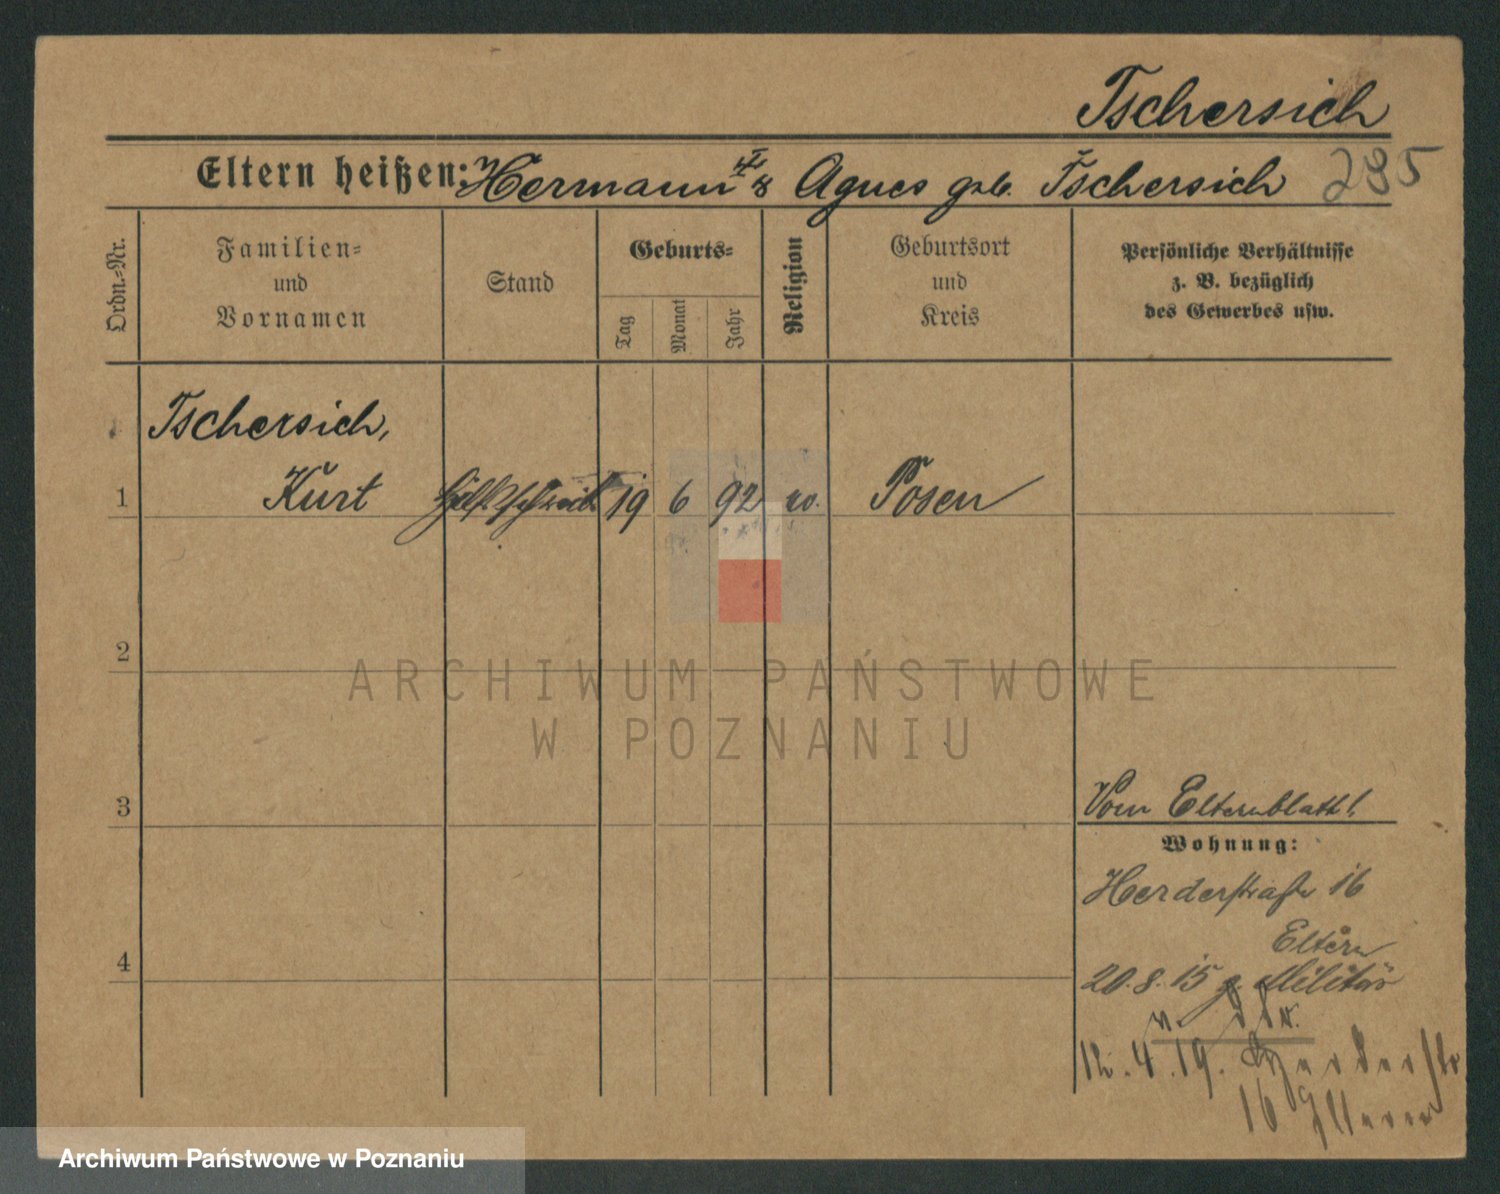 Tschersich
Eltern heißen: Hermann & Agnes geb. Tschersich
295
Ordn.-Nr.
Familien-
und
Vornamen
Stand
Geburts-
Tag
Monat
Jahr
Religion
Geburtsort
und
Kreis
Persönliche Verhältnisse
z. B. bezüglich
des Gewerbes usw.
Tschersich,
1 Kurt 19 6 92 Posen
2
3
4
Vom Elternblatt!
Wohnung:
Herderstraße 16
Eltern
20.8.15 z. Militär
12.4.19. Herderstr
16 Eltern
ARCHIWUM PAŃSTWOWE
W POZNANIU
Archiwum Państwowe w Poznaniu